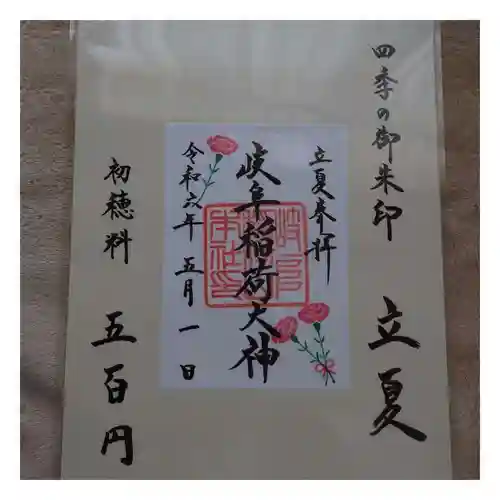 四季の御朱印
立夏
立夏奉拝
岐阜稲荷大神
令和六年 五月 一日
初穂料
五百円